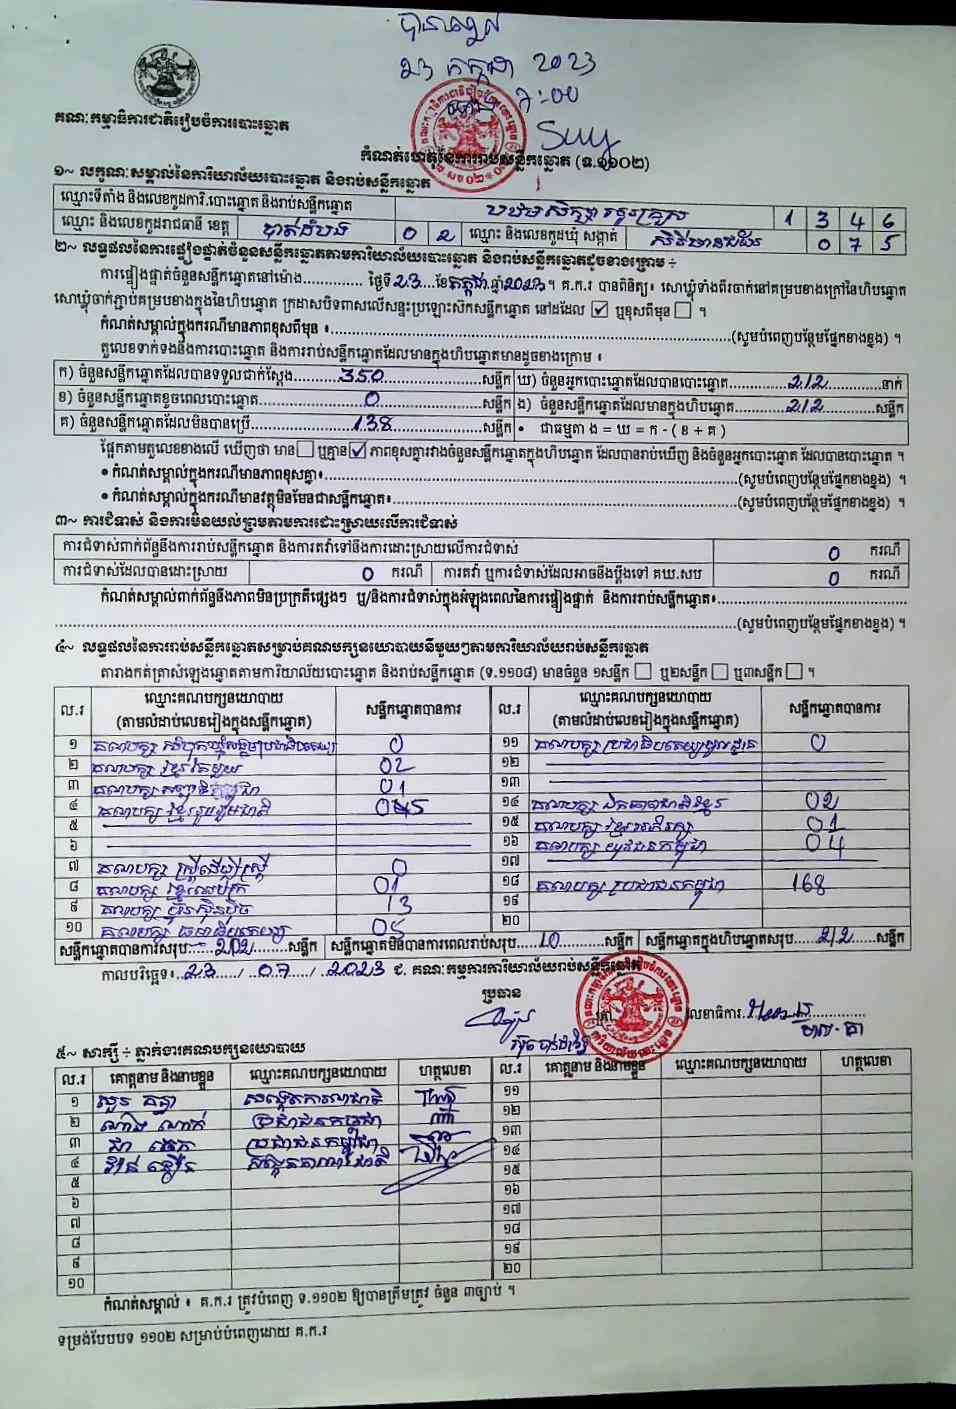 បានឃើញ
២៣ កក្កដា 2023
គណៈកម្មាធិការជាតិរៀបចំការបោះឆ្នោត
កំណត់ហេតុនៃការរាប់សន្លឹកឆ្នោត (ទ.១១០២)
១~ លក្ខណៈសម្គាល់នៃការិយាល័យបោះឆ្នោត និងរាប់សន្លឹកឆ្នោត
ឈ្មោះទីតាំង និងលេខកូដការិ.បោះឆ្នោត និងរាប់សន្លឹកឆ្នោត 1 3 4 6
ឈ្មោះ និងលេខកូដរាជធានី ខេត្ត បាត់ដំបង 0 2 ឈ្មោះ និងលេខកូដឃុំ សង្កាត់ 0 7 5
២~ លទ្ធផលនៃការផ្ទៀងផ្ទាត់ចំនួនសន្លឹកឆ្នោតតាមការិយាល័យបោះឆ្នោត និងរាប់សន្លឹកឆ្នោតដូចខាងក្រោម ÷
ការផ្ទៀងផ្ទាត់ចំនួនសន្លឹកឆ្នោតនៅម៉ោង.............. ថ្ងៃទី 23 ខែ កក្កដា ឆ្នាំ 2023។ គ.ក.រ បានពិនិត្យ៖ សោឃ្លុំទាំងពីរចាក់នៅគម្របខាងក្រៅនៃហិបឆ្នោត
សោឃ្លុំចាក់ភ្ជាប់គម្របខាងក្នុងនៃហិបឆ្នោត ក្រដាសបិទពាសលើសន្ទះប្រឡោះសៀតសន្លឹកឆ្នោត នៅដដែល ☑ ឬខុសពីមុន ☐ ។
កំណត់សម្គាល់ក្នុងករណីមានភាពខុសពីមុន ៖..............(សូមបំពេញបន្ថែមផ្នែកខាងខ្នង) ។
តួលេខទាក់ទងនឹងការបោះឆ្នោត និងការរាប់សន្លឹកឆ្នោតដែលមានក្នុងហិបឆ្នោតមានដូចខាងក្រោម ៖
ក) ចំនួនសន្លឹកឆ្នោតដែលបានទទួលជាក់ស្តែង 350 សន្លឹក ឃ) ចំនួនអ្នកបោះឆ្នោតដែលបានបោះឆ្នោត 212 នាក់
ខ) ចំនួនសន្លឹកឆ្នោតខូចពេលបោះឆ្នោត 0 សន្លឹក ង) ចំនួនសន្លឹកឆ្នោតដែលមានក្នុងហិបឆ្នោត 212 សន្លឹក
គ) ចំនួនសន្លឹកឆ្នោតដែលមិនបានប្រើ 138 សន្លឹក • ជាធម្មតា ង = ឃ = ក - ( ខ + គ )
ផ្អែកតាមតួលេខខាងលើ ឃើញថា មាន ☐ ឬគ្មាន ☑ ភាពខុសគ្នារវាងចំនួនសន្លឹកឆ្នោតក្នុងហិបឆ្នោត ដែលបានរាប់ឃើញ និងចំនួនអ្នកបោះឆ្នោត ដែលបានបោះឆ្នោត ។
• កំណត់សម្គាល់ក្នុងករណីមានភាពខុសគ្នា៖..............(សូមបំពេញបន្ថែមផ្នែកខាងខ្នង) ។
• កំណត់សម្គាល់ក្នុងករណីមានវត្ថុមិនមែនជាសន្លឹកឆ្នោត៖..............(សូមបំពេញបន្ថែមផ្នែកខាងខ្នង) ។
៣~ ការជំទាស់ និងការមិនយល់ព្រមតាមការដោះស្រាយលើការជំទាស់
ការជំទាស់ពាក់ព័ន្ធនឹងការរាប់សន្លឹកឆ្នោត និងការតវ៉ាទៅនឹងការដោះស្រាយលើការជំទាស់ 0 ករណី
ការជំទាស់ដែលបានដោះស្រាយ 0 ករណី ការតវ៉ា ឬការជំទាស់ដែលអាចនឹងប្តឹងទៅ គឃ.សប 0 ករណី
កំណត់សម្គាល់ពាក់ព័ន្ធនឹងភាពមិនប្រក្រតីផ្សេងៗ ឬ/និងការជំទាស់ក្នុងអំឡុងពេលនៃការផ្ទៀងផ្ទាត់ និងការរាប់សន្លឹកឆ្នោត៖..............
..............(សូមបំពេញបន្ថែមផ្នែកខាងខ្នង) ។
៤~ លទ្ធផលនៃការរាប់សន្លឹកឆ្នោតសម្រាប់គណបក្សនយោបាយនីមួយៗតាមការិយាល័យរាប់សន្លឹកឆ្នោត
តារាងកត់ត្រាសំឡេងឆ្នោតតាមការិយាល័យបោះឆ្នោត និងរាប់សន្លឹកឆ្នោត (ទ.១១០៨) មានចំនួន ១សន្លឹក ☐ ឬ២សន្លឹក ☐ ឬ៣សន្លឹក ☐ ។
ល.រ ឈ្មោះគណបក្សនយោបាយ សន្លឹកឆ្នោតបានការ ល.រ ឈ្មោះគណបក្សនយោបាយ សន្លឹកឆ្នោតបានការ
(តាមលំដាប់លេខរៀងក្នុងសន្លឹកឆ្នោត) (តាមលំដាប់លេខរៀងក្នុងសន្លឹកឆ្នោត)
១ គណបក្ស សំបុកឃ្មុំសង្គមប្រជាធិបតេយ្យ 0 ១១ គណបក្ស ប្រជាធិបតេយ្យមូលដ្ឋាន 0
២ គណបក្ស ខ្មែរតែមួយ 02 ១២
៣ គណបក្ស សញ្ជាតិកម្ពុជា 01 ១៣
៤ គណបក្ស ខ្មែររួបរួមជាតិ ១៤ គណបក្ស ឯកភាពជាតិខ្មែរ 02
៥ ១៥ គណបក្ស ខ្មែរអភិរក្ស 01
៦ ១៦ គណបក្ស យុវជនកម្ពុជា 04
៧ គណបក្ស ស្ត្រីដើម្បីស្ត្រី 0 ១៧
៨ គណបក្ស ខ្មែរឈប់ក្រ 01 ១៨ គណបក្ស ប្រជាជនកម្ពុជា 168
៩ គណបក្ស ហ្វ៊ុនស៊ិនប៉ិច 13 ១៩
១០ គណបក្ស ធម្មាធិបតេយ្យ 05 ២០
សន្លឹកឆ្នោតបានការសរុប 202 សន្លឹក សន្លឹកឆ្នោតមិនបានការពេលរាប់សរុប 10 សន្លឹក សន្លឹកឆ្នោតក្នុងហិបឆ្នោតសរុប 212 សន្លឹក
កាលបរិច្ឆេទ៖ 23 / 07 / 2023 ជ. គណៈកម្មការការិយាល័យរាប់សន្លឹកឆ្នោត
ប្រធាន
លេខាធិការ
៥~ សាក្សី ÷ ភ្នាក់ងារគណបក្សនយោបាយ
ល.រ គោត្តនាម និងនាមខ្លួន ឈ្មោះគណបក្សនយោបាយ ហត្ថលេខា ល.រ គោត្តនាម និងនាមខ្លួន ឈ្មោះគណបក្សនយោបាយ ហត្ថលេខា
១ ១១
២ ប្រជាជនកម្ពុជា ១២
៣ ប្រជាជនកម្ពុជា ១៣
៤ ១៤
៥ ១៥
៦ ១៦
៧ ១៧
៨ ១៨
៩ ១៩
១០ ២០
កំណត់សម្គាល់ ៖ គ.ក.រ ត្រូវបំពេញ ទ.១១០២ ឱ្យបានត្រឹមត្រូវ ចំនួន ៣ច្បាប់ ។
ទម្រង់បែបបទ ១១០២ សម្រាប់បំពេញដោយ គ.ក.រ